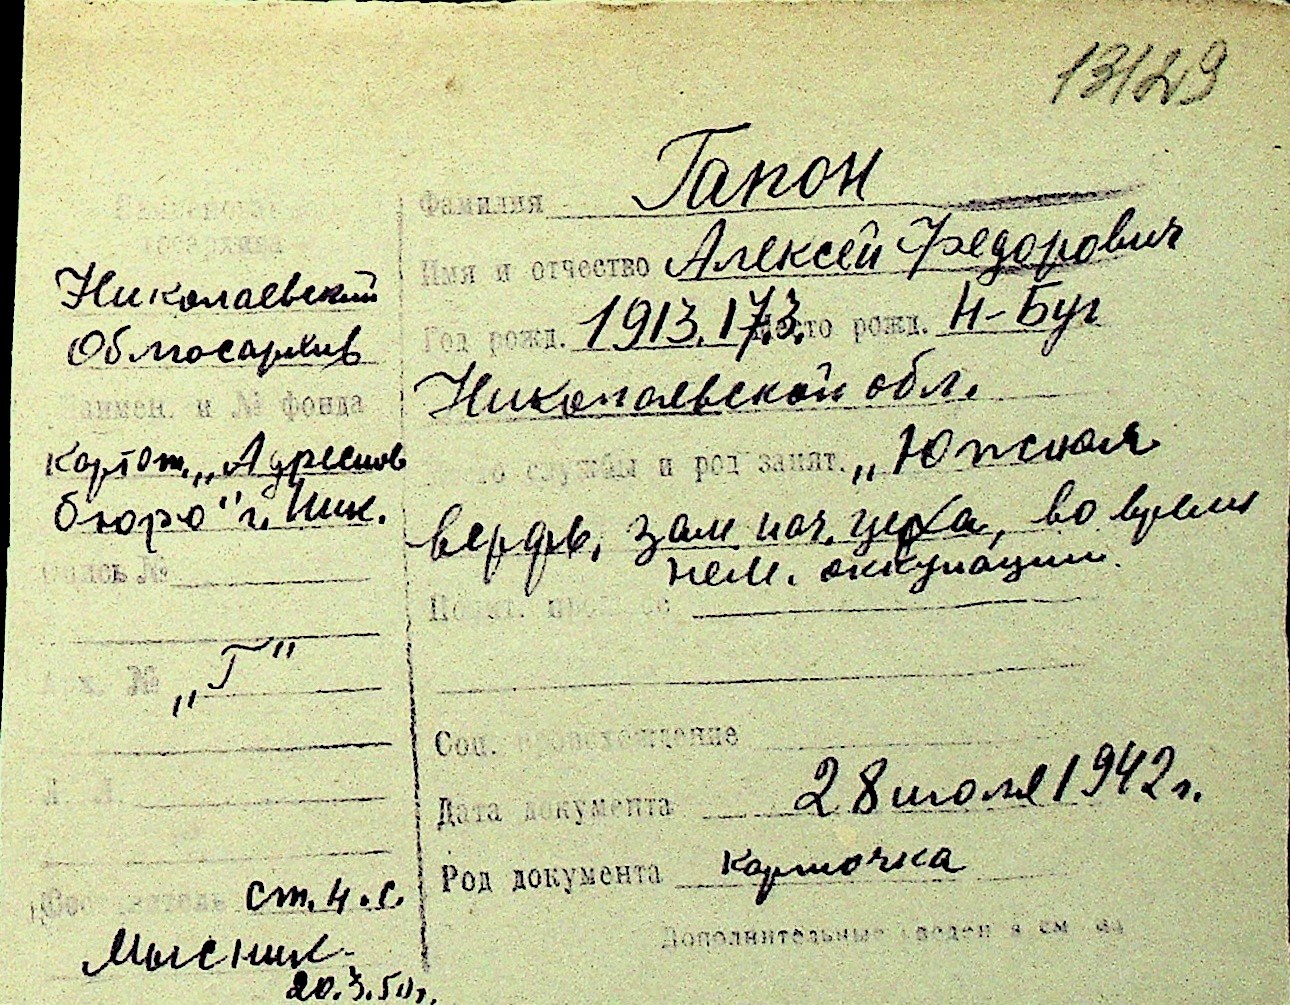 13129
Фамилия Гапон
Имя и отчество Алексей Федорович
Год рожд. 1913.17.3. Место рожд. Н-Буг
Николаевской обл.
службы и род занят. „Южная
верфь, зам. нач. цеха, во время
нем. оккупации.
Соц. происхождение
Дата документа 28 июля 1942 г.
Род документа карточка
Дополнительные сведения см. на
Николаевский
Облгосархив
Наимен. и № фонда
Картот. „Адресное
бюро" г. Ник.
Опись №
Арх. № „Г"
Л. Л.
Составитель ст. н. с.
Мысник
20.3.50 г.